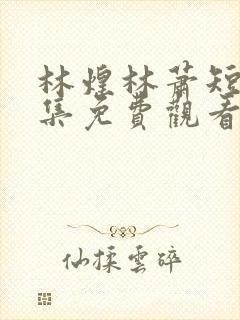 林煌林蕭短
集免費觀看
仙揉雲碎